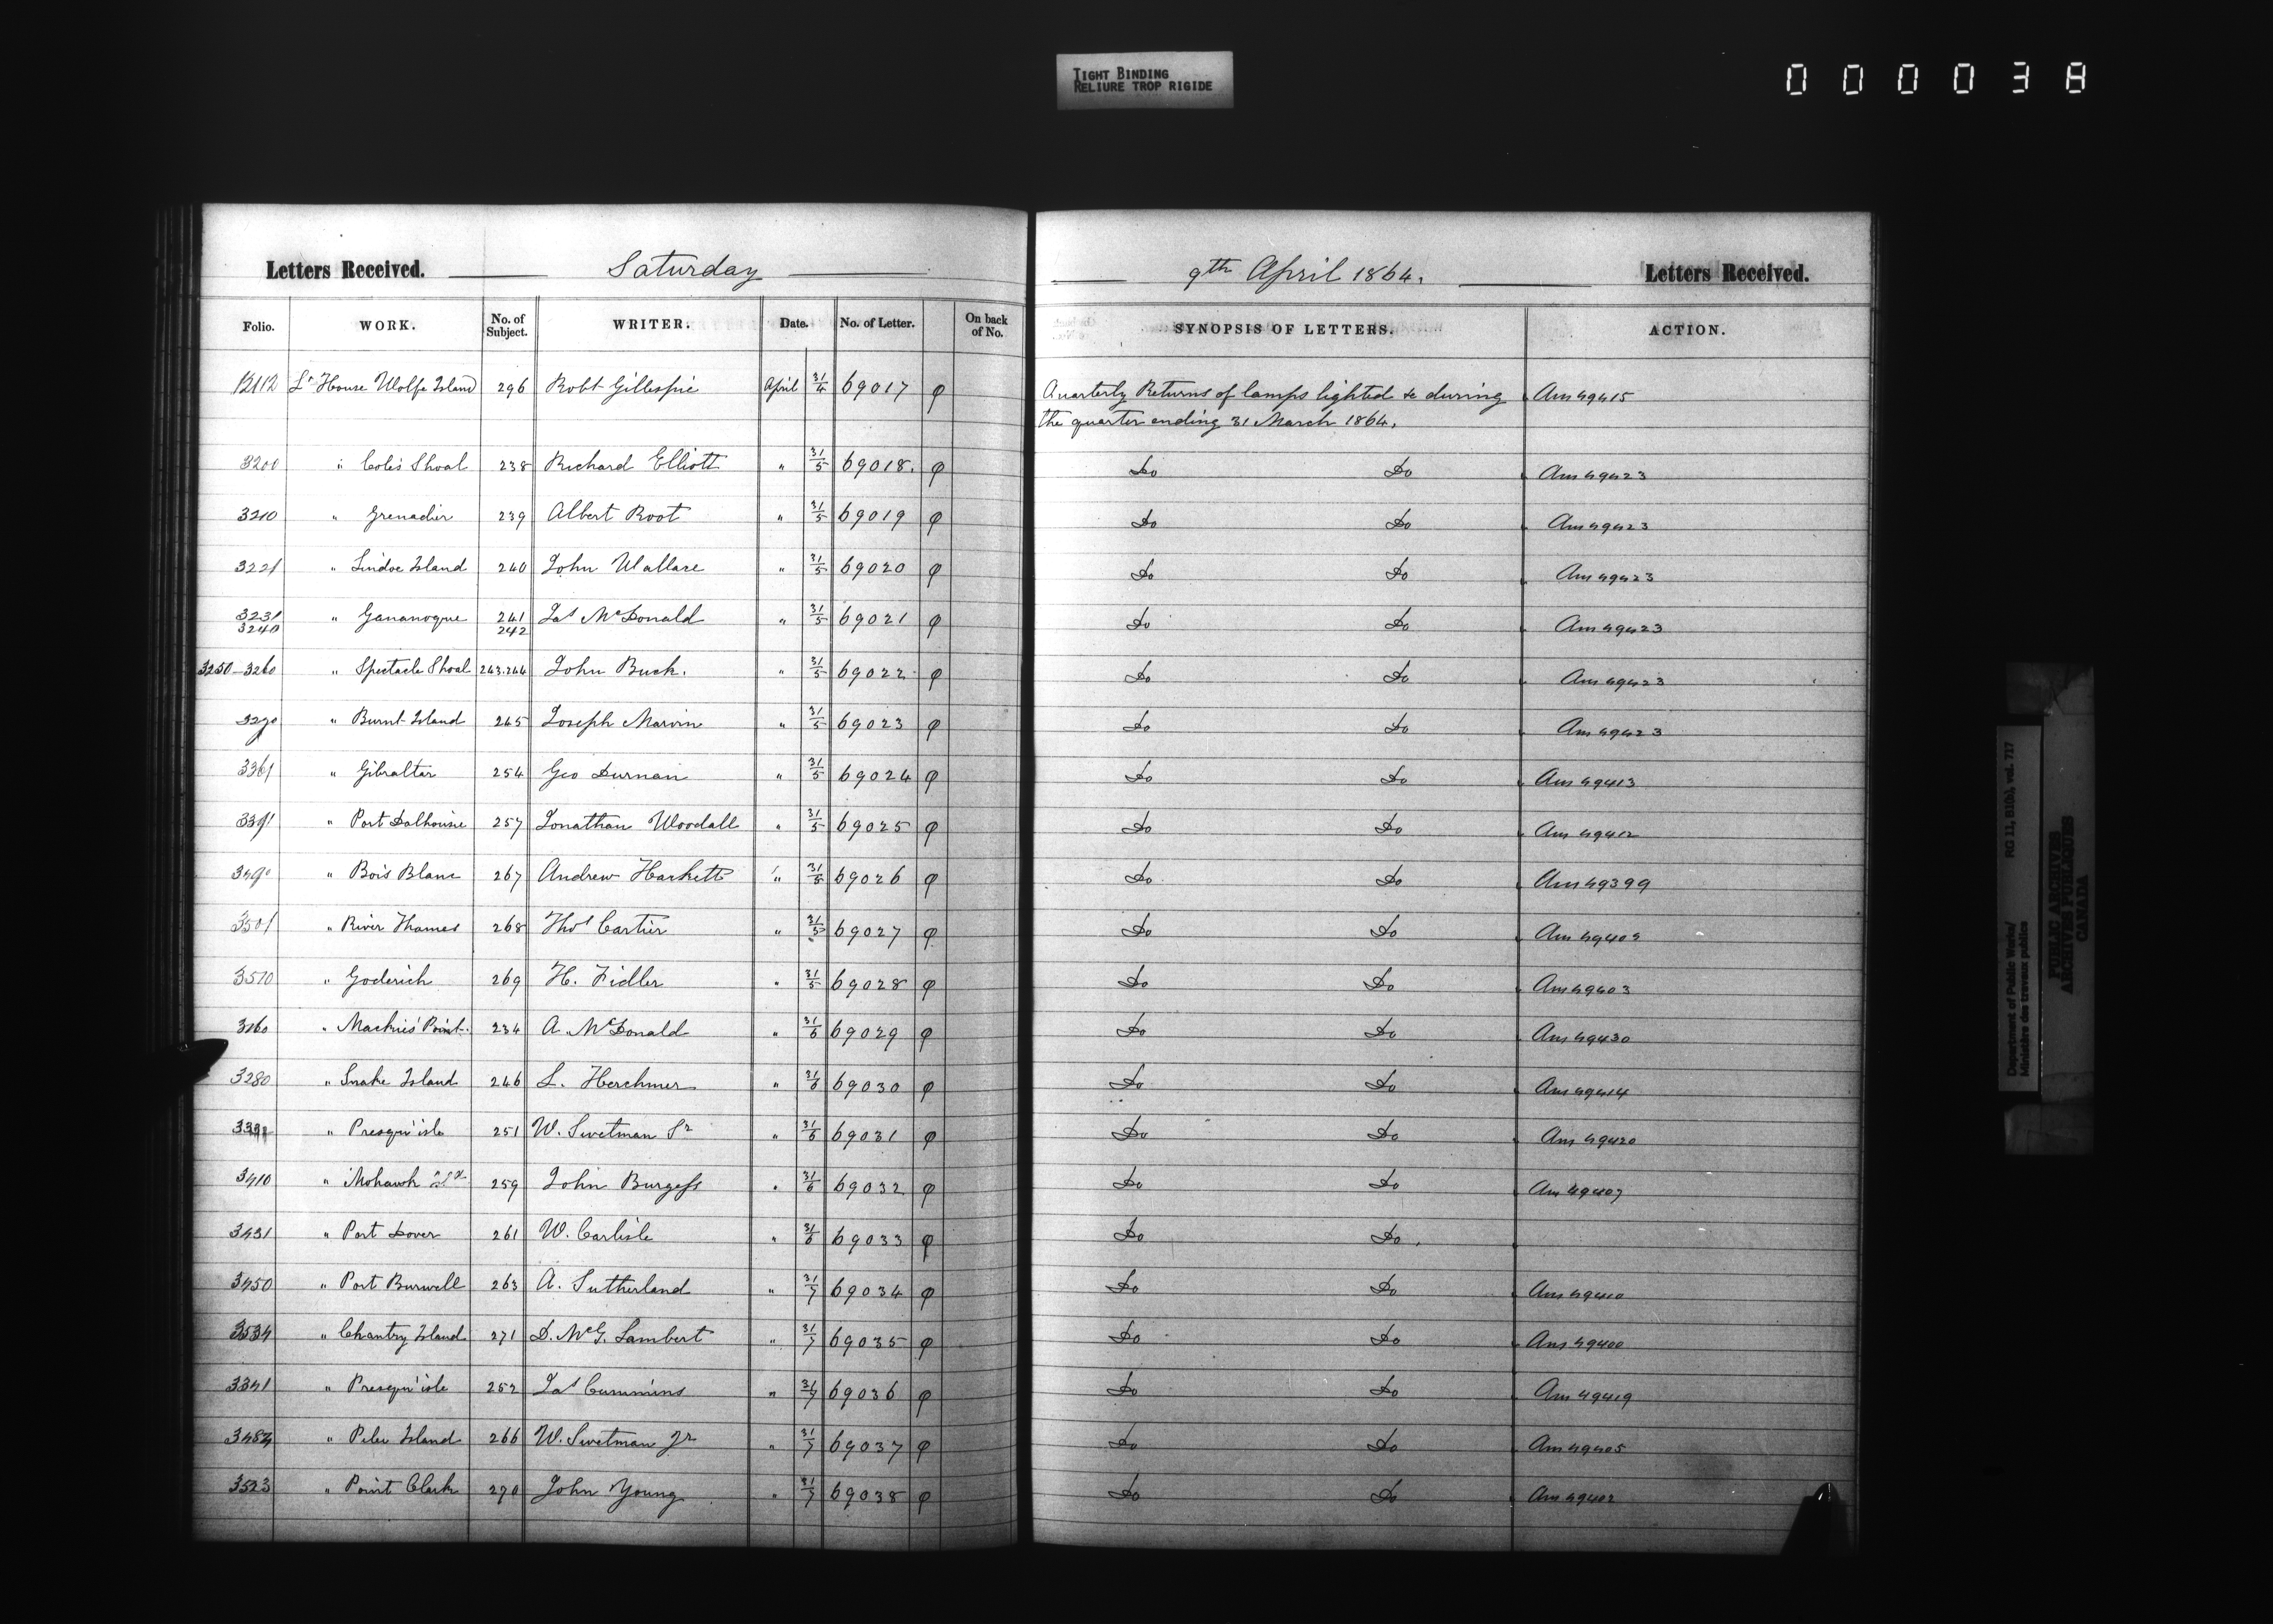 TIGHT BINDING
RELIURE TROP RIGIDE
000038
Letters Received. Saturday 9th April 1864. Letters Received.
Folio. WORK. No. of Subject. WRITER. Date. No. of Letter. On back of No. SYNOPSIS OF LETTERS. ACTION.
12112 Lt House Wolfe Island 296 Robt Gillespie April 31/4 69017 φ Quarterly Returns of lamps lighted &c during Ans 49415
the quarter ending 31 March 1864.
3200 " Cole's Shoal 238 Richard Elliott " 31/5 69018. φ Do Do Ans 49423
3210 " Grenadier 239 Albert Root " 31/5 69019 φ Do Do Ans 49423
3221 " Lindoe Island 240 John Wallace " 31/5 69020 φ Do Do Ans 49423
3231 3240 " Gananoque 241 242 Jas McDonald " 31/5 69021 φ Do Do Ans 49423
3250-3260 " Spectacle Shoal 243.244 John Buck. " 31/5 69022 φ Do Do Ans 49423
3270 " Burnt Island 245 Joseph Marvin " 31/5 69023 φ Do Do Ans 49423
3361 " Gibralter 254 Geo Durnan " 31/5 69024 φ Do Do Ans 49413
3391 " Port Dalhousie 257 Jonathan Woodall " 31/5 69025 φ Do Do Ans 49412
3490 " Bois Blanc 267 Andrew Hackett " 31/5 69026 φ Do Do Ans 49399
3501 " River Thames 268 Thos Cartier " 31/5 69027 φ Do Do Ans
3510 " Goderich 269 H. Fidler " 31/5 69028 φ Do Do Ans 49403
3160 " Mackies' Point. 234 A. McDonald " 31/6 69029 φ Do Do Ans 49430
3280 " Snake Island 246 L. Herchmer " 31/6 69030 φ Do Do Ans 49414
" Presqu'isle 251 W. Swetman Sr " 31/6 69031 φ Do Do Ans 49420
3410 " Mohawk Isd 259 John Burgess " 31/6 69032 φ Do Do Ans 49407
3431 " Port Dover 261 W. Carlisle " 31/6 69033 φ Do Do.
3450 " Port Burwell 263 A. Sutherland " 31/7 69034 φ Do Do Ans 49410
3534 " Chantry Island 271 D. McG. Lambert " 31/7 69035 φ Do Do Ans 49400
3341 " Presqu'isle 252 Jas Cummins " 31/7 69036 φ Do Do Ans 49419
" Pelee Island 266 W. Swetman Jr " 31/7 69037 φ Do Do Ans 49405
3523 " Point Clark 270 John Young " 31/7 69038 φ Do Do Ans 49402
Department of Public Works/ RG 11, B1(b), vol. 717
Ministère des travaux publics
PUBLIC ARCHIVES
ARCHIVES PUBLIQUES
CANADA